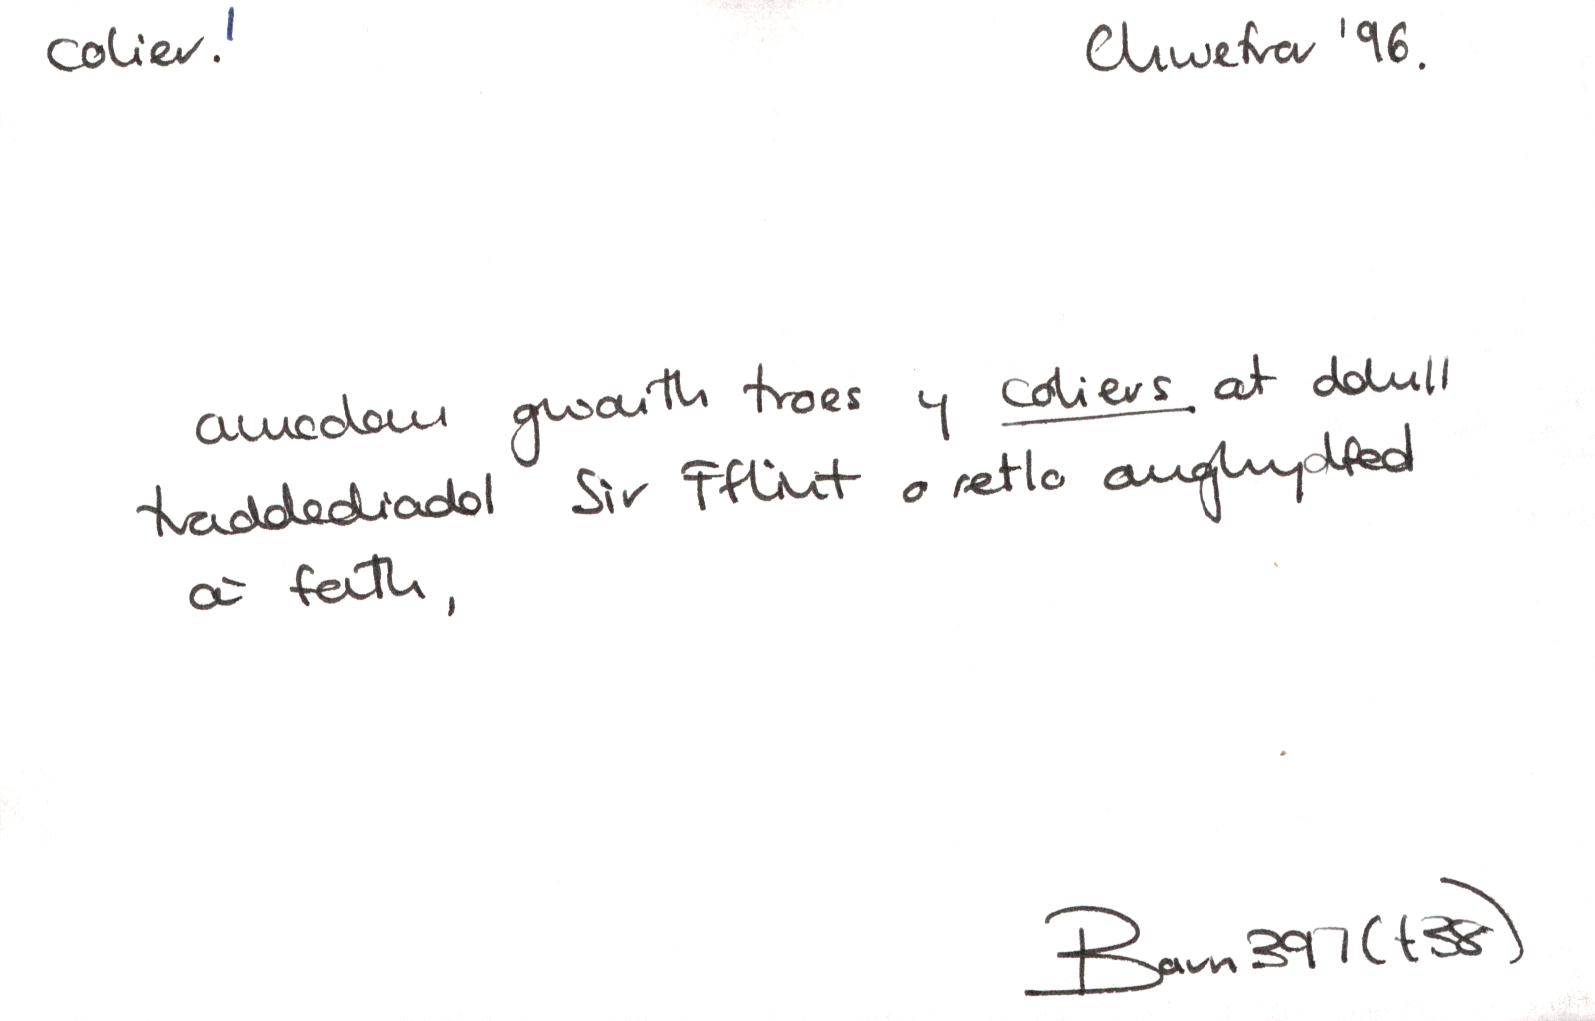 colier.¹ Chwefror '96.
amodau gwaith troes y coliers at ddull
traddodiadol Sir Fflint o setlo anghydfod
a'i feith,
Barn 397 (t38)